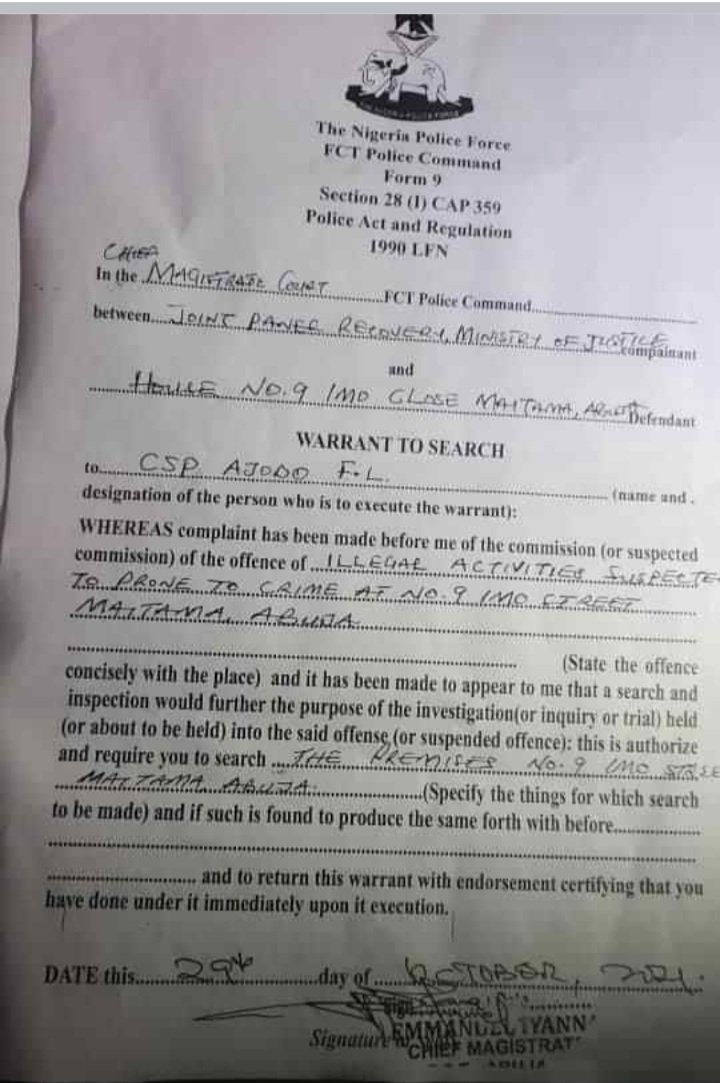 The Nigeria Police Force
FCT Police Command
Form 9
Section 28 (I) CAP 359
Police Act and Regulation
1990 LFN
CHIEF
In the MAGISTRATE COURT FCT Police Command
between JOINT PANEL RECOVERY, MINISTRY OF JUSTICE compainant
and
HOUSE NO. 9 IMO CLOSE MAITAMA, Defendant
WARRANT TO SEARCH
to CSP AJODO F.L. (name and .
designation of the person who is to execute the warrant):
WHEREAS complaint has been made before me of the commission (or suspected
commission) of the offence of ILLEGAL ACTIVITIES SUSPECTE
TO PRONE TO CRIME AT NO. 9 IMO STREET
MAITAMA, ABUJA
(State the offence
concisely with the place) and it has been made to appear to me that a search and
inspection would further the purpose of the investigation(or inquiry or trial) held
(or about to be held) into the said offense (or suspended offence): this is authorize
and require you to search THE PREMISES NO. 9 IMO
MAITAMA ABUJA. (Specify the things for which search
to be made) and if such is found to produce the same forth with before
and to return this warrant with endorsement certifying that you
have done under it immediately upon it execution.
DATE this 29th day of OCTOBER, 2021.
EMMANUEL IYANN
Signature
CHIEF MAGISTRAT